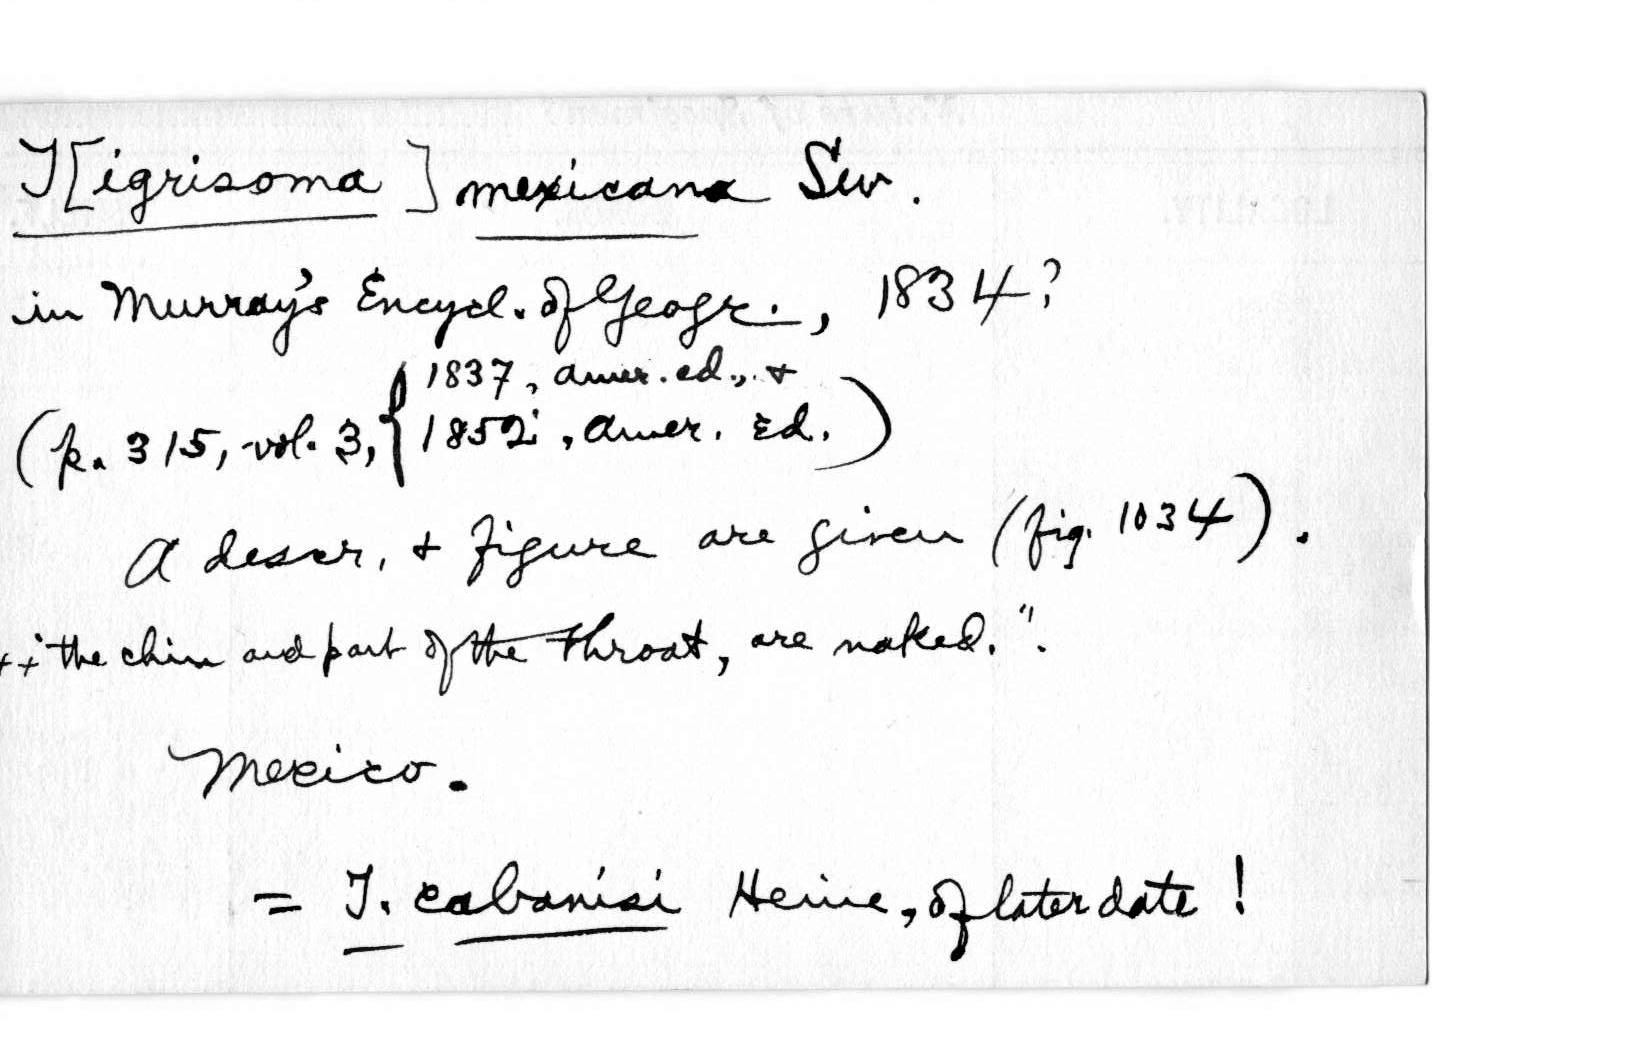 T[igrisoma] mexicana Sw.
in Murray's Encycl. of Geogr., 1834?
1837, Amer. ed., +
(p. 315, vol. 3, { 1852, Amer. Ed.)
A descr. + figure are given (fig. 1034).
++ "the chin and part of the throat, are naked.".
Mexico.
= T. cabanisi Heine, of later date!